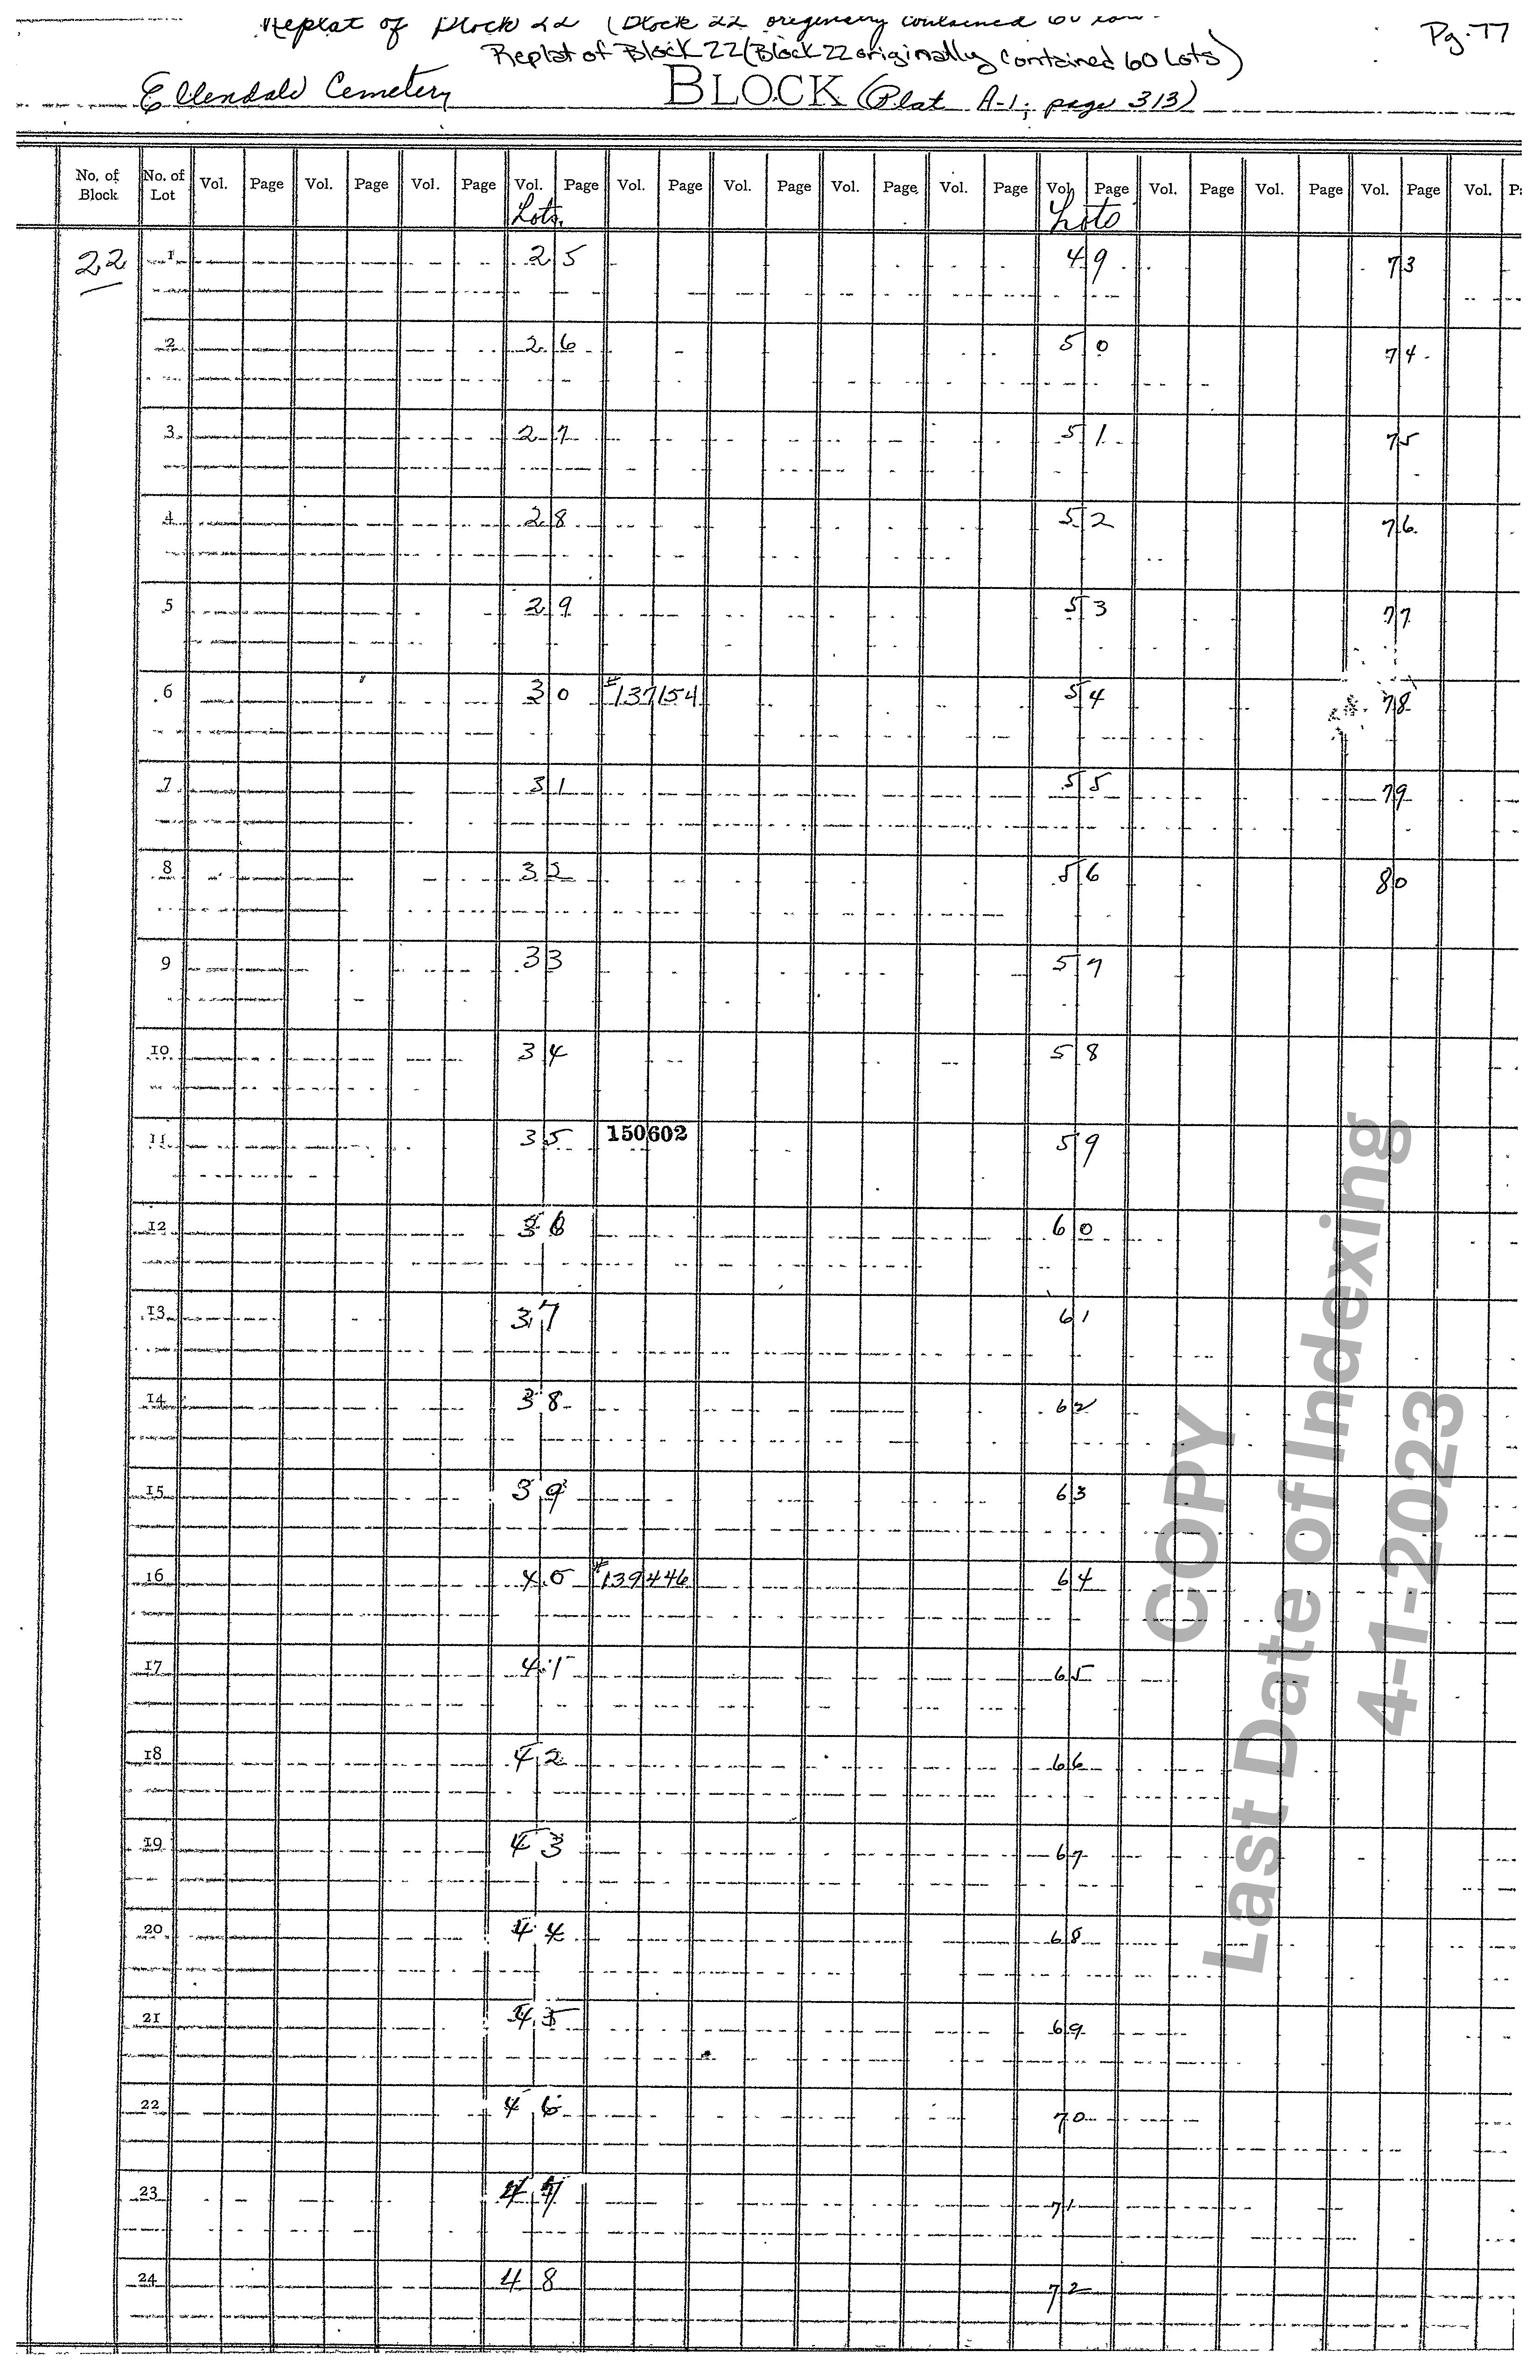 Replat of Block 22 (Block 22 originally contained 60
Replat of Block 22 (Block 22 originally contained 60 Lots)
Pg. 77
Ellendale Cemetery BLOCK (Plat A-1; page 313)
No. of Block No. of Lot Vol. Page Vol. Page Vol. Page Vol. Page Vol. Page Vol. Page Vol. Page Vol. Page Vol. Page Vol. Page Vol. Page Vol. Page Vol.
Lots. Lots
22 1 25 49 73
2 26 50 74
3 27 51 75
4 28 52 76
5 29 53 77
6 30 #137154 54 78
7 31 55 79
8 32 56 80
9 33 57
10 34 58
11 35 150602 59
12 36 60
13 37 61
14 38 62
15 39 63
16 40 #139446 64
17 41 65
18 42 66
19 43 67
20 44 68
21 45 69
22 46 70
23 47 71
24 48 72
COPY
Last Date of Indexing
4-1-2023